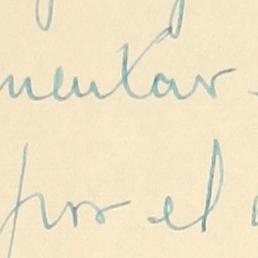 mentar
por el